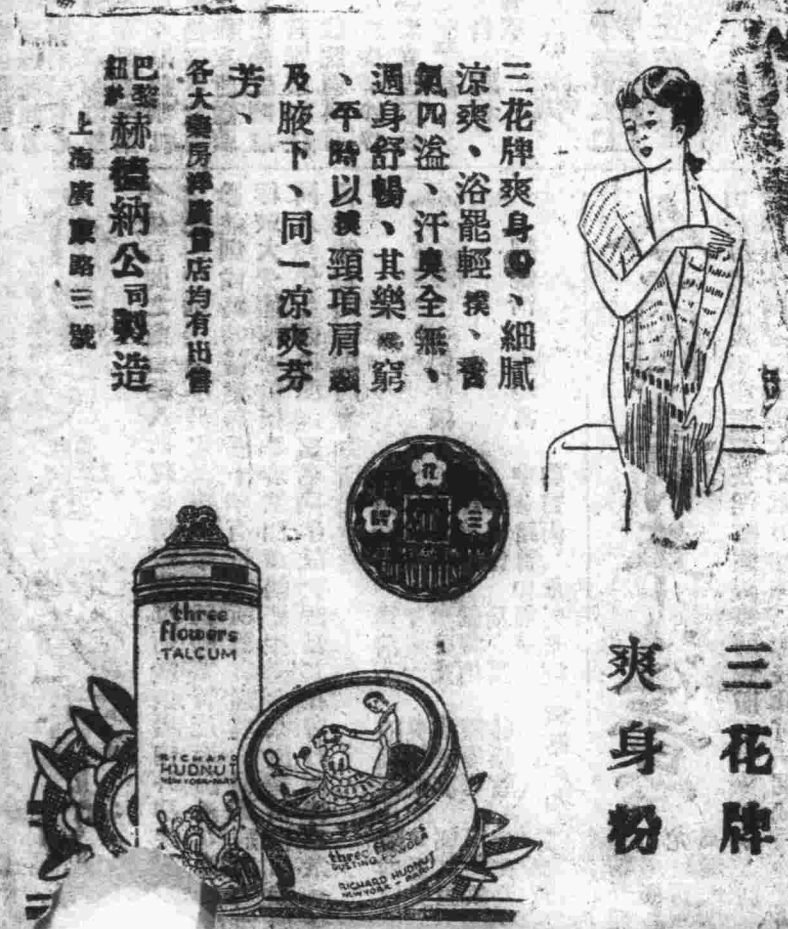 三花牌爽身粉、細膩
涼爽、浴罷輕撲、香
氣四溢、汗臭全無、
週身舒暢、其樂無窮
、平時以撲頸項肩
及腋下、同一涼爽芬
芳、
各大藥房洋廣貨店均有出售
巴黎
紐約
赫德納公司製造
上海廣東路三號
三花牌
爽身粉
three
flowers
TALCUM
RICHARD
HUDNUT
NEW YORK-PARIS
three flowers
DUSTING POWDER
RICHARD HUDNUT
NEW YORK - PARIS